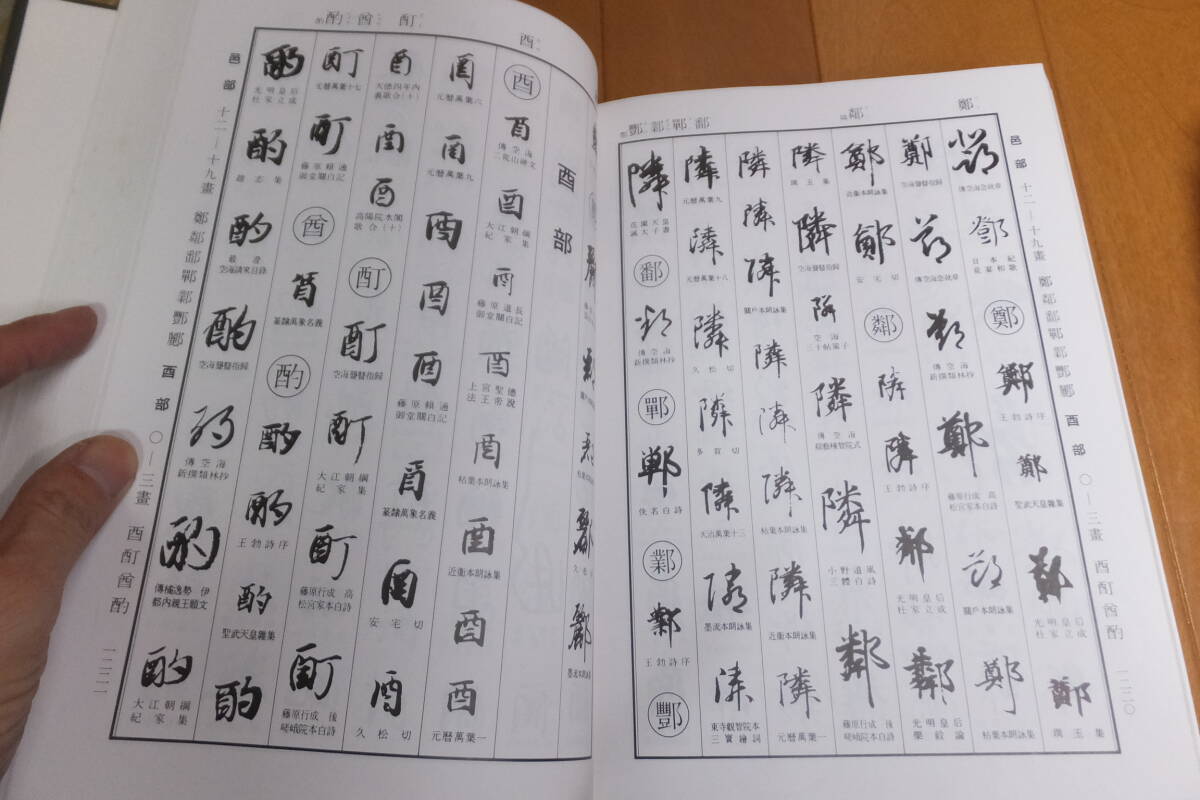 鄭
鄰
鄱鄲鄴酆
邑部 十二—十九畫 鄭鄰鄱鄲鄴酆酈 酉部 〇—三畫 酉酊酋酌 一二二〇
傳空海急就章
鄧
日本紀
竟宴和歌
鄭
鄭
王勃詩序
鄭
聖武天皇雜集
鄭
光明皇后
杜家立成
鄭
玉集
鄭
空海聾瞽指歸
傳空海急就章
傳空海
新撰類林抄
鄭
藤原行成 高
松宮家本白詩
關戶本朗詠集
鄭
粘葉本朗詠集
鄭
近衞本朗詠集
鄭
安宅切
鄰
隣
隣
王勃詩序
鄰
光明皇后
杜家立成
鄰
光明皇后
樂毅論
隣
玉集
隣
空海聾瞽指歸
隣
空海
三十帖策子
隣
傳空海
綜藝種智院式
隣
小野道風
三體白詩
鄰
藤原行成 後
嵯峨院本白詩
隣
隣
關戶本朗詠集
隣
隣
隣
粘葉本朗詠集
隣
近衞本朗詠集
隣
元曆萬葉一
隣
元曆萬葉九
隣
元曆萬葉十八
隣
久松切
隣
多賀切
隣
天治萬葉十三
隣
墨流本朗詠集
東寺觀智院本
三寶繪詞
隣
花園天皇
誡太子書
鄱
傳空海
新撰類林抄
鄲
鄲
佚名白詩
鄴
鄴
王勃詩序
酆
酉
酋
酌
酊
邑部 十二—十九畫 鄭鄰鄱鄲鄴酆酈 酉部 〇—三畫 酉酊酋酌 一二二一
墨流本朗詠集
酉部
酉
酉
傳空海
二荒山碑文
酉
大江朝綱
紀家集
酉
藤原道長
御堂關白記
酉
上宮聖德
法王帝說
酉
粘葉本朗詠集
酉
近衞本朗詠集
酉
酉
元曆萬葉一
酉
元曆萬葉六
酉
元曆萬葉九
酉
酉
酉
藤原賴通
御堂關白記
酉
篆隷萬象名義
酉
安宅切
酉
久松切
酉
天德四年內
裏歌合(十)
酉
酉
高陽院水閣
歌合(十)
酊
酊
空海聾瞽指歸
酊
大江朝綱
紀家集
酊
藤原行成 高
松宮家本白詩
酊
藤原行成 後
嵯峨院本白詩
酊
元曆萬葉十七
酊
藤原賴通
御堂關白記
酋
酋
篆隷萬象名義
酌
酌
酌
王勃詩序
酌
聖武天皇雜集
酌
酌
光明皇后
杜家立成
酌
雜志集
酌
最澄
空海請來目錄
酌
空海聾瞽指歸
酌
傳空海
新撰類林抄
酌
傳橘逸勢 伊
都內親王願文
酌
大江朝綱
紀家集